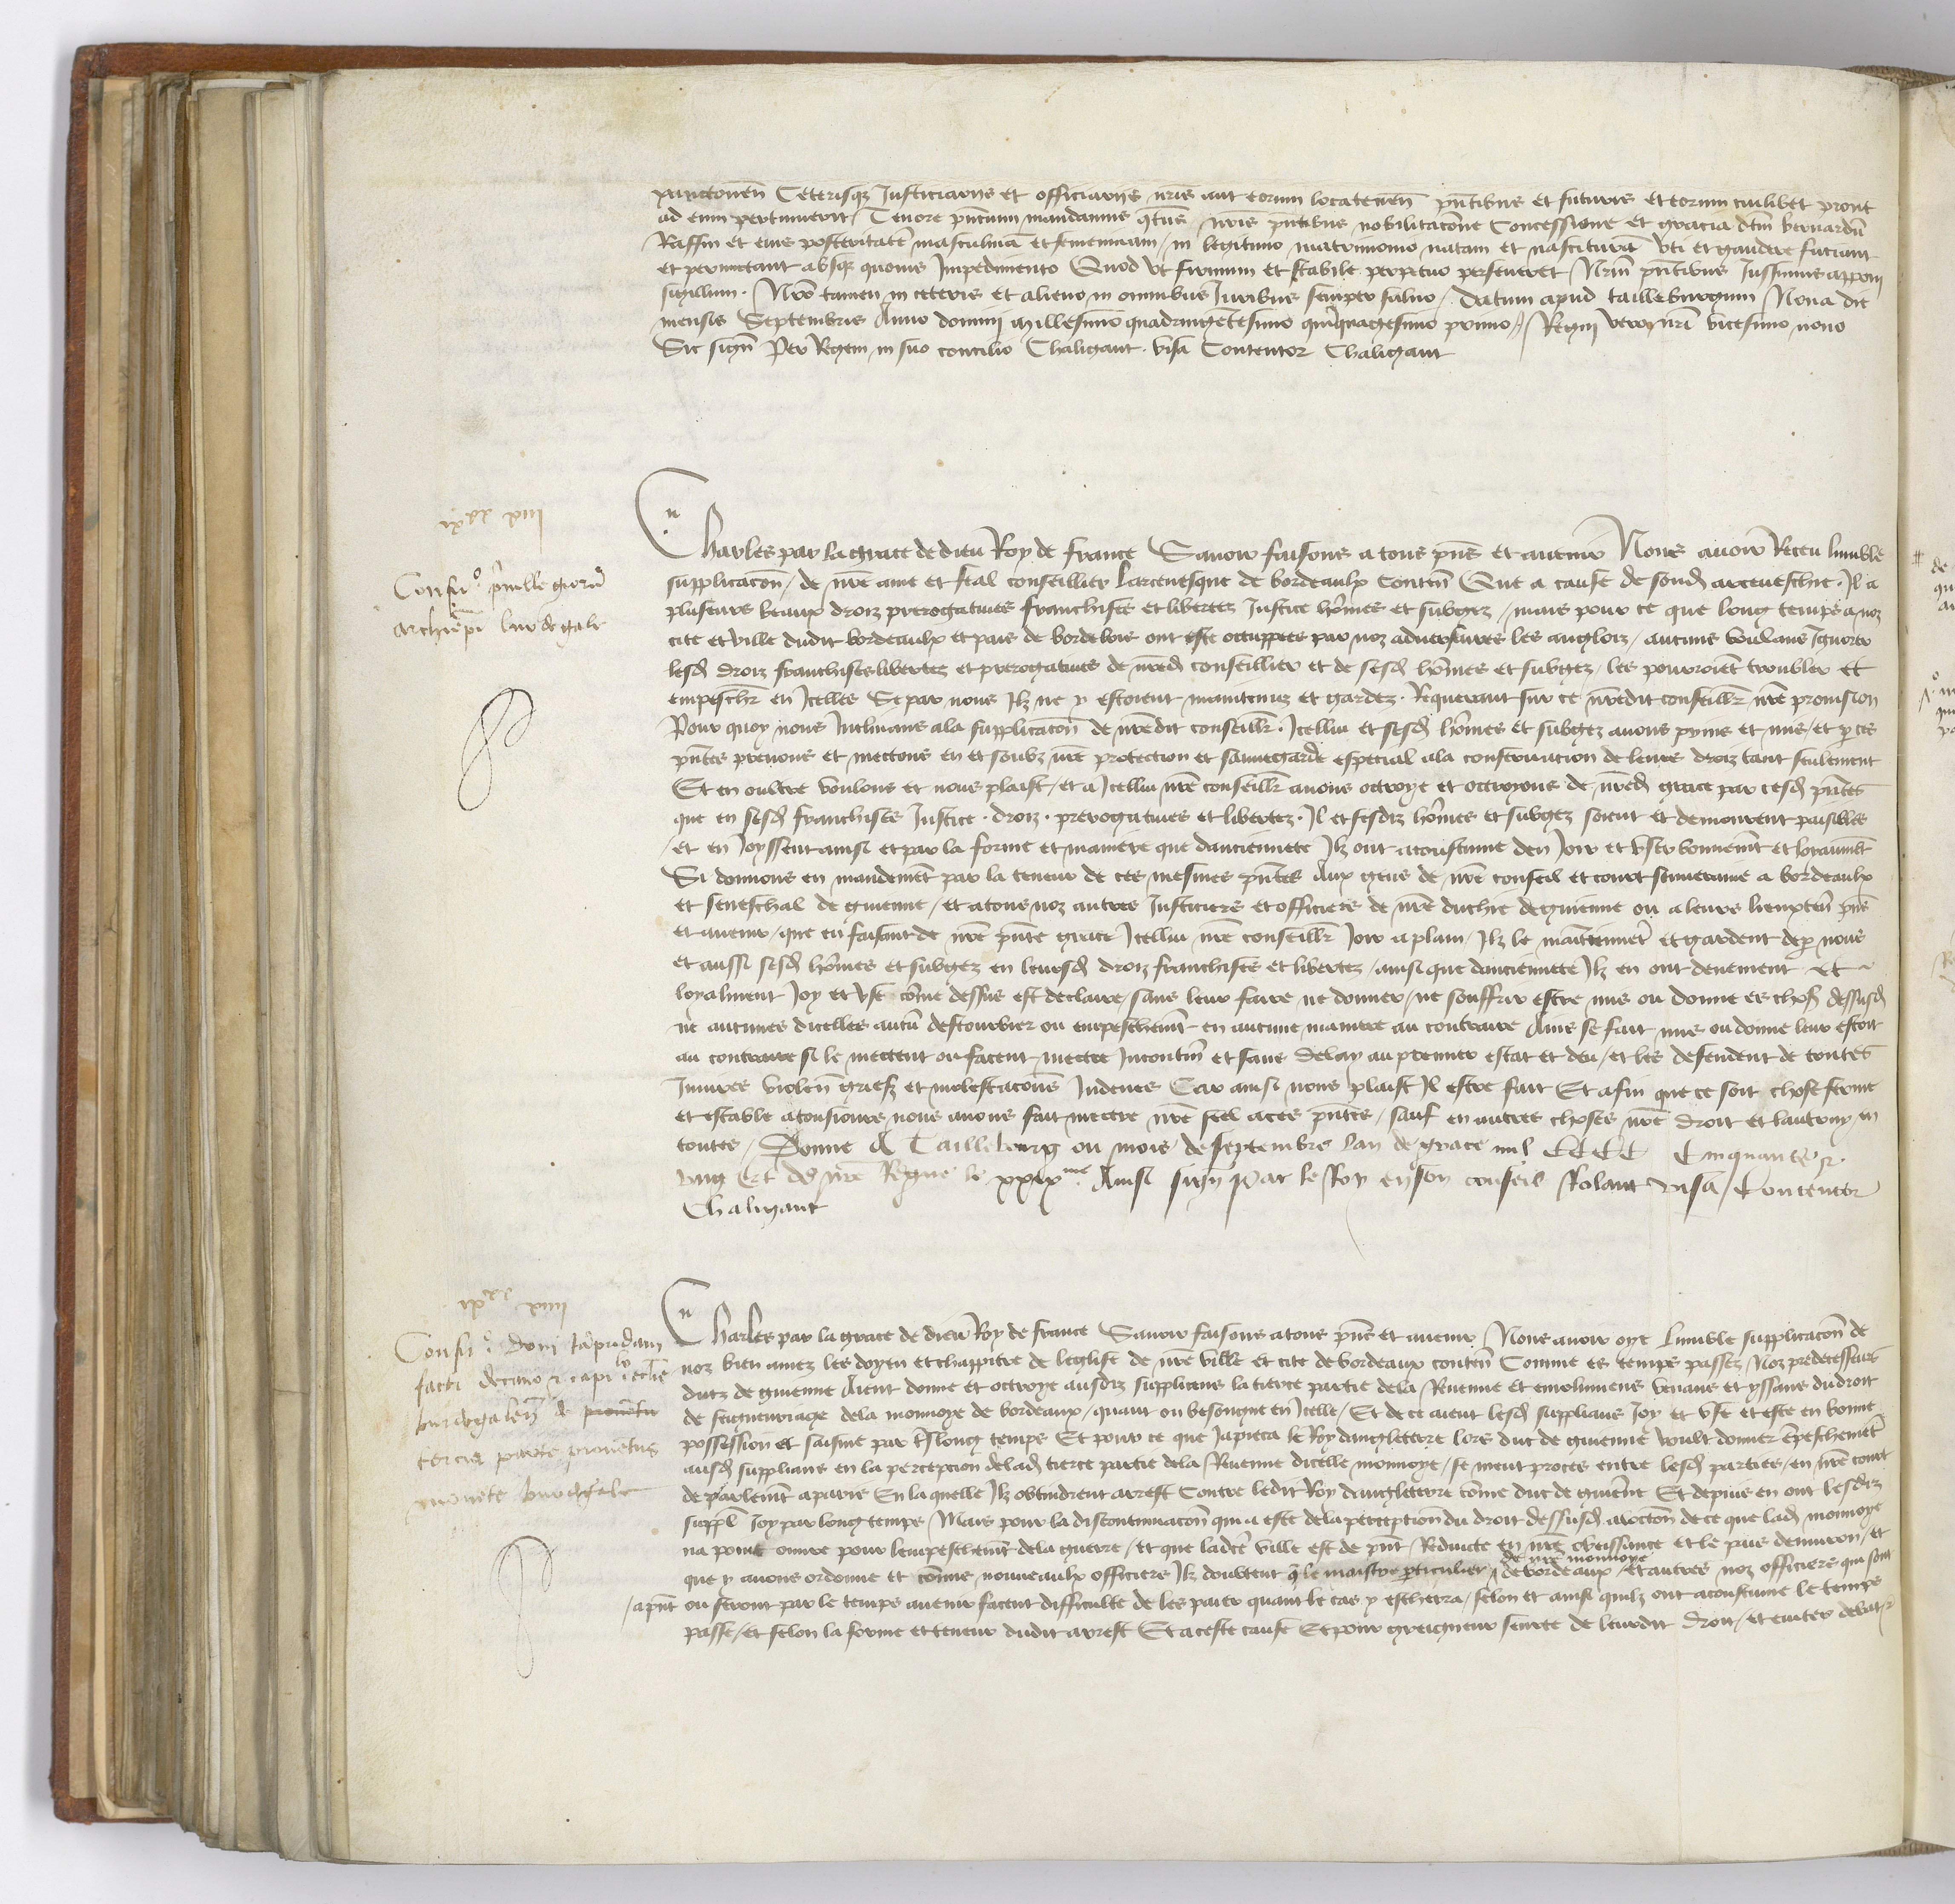 xanctonen Ceterisque Justiciariis et officiariis nris aut eorum locatenen pntibus et futuris et eorum cuilibet prout
ad eum pertinuerit Tenore pncium mandamus qtus nris pntibus nobilitacone Concessione et gracia dtm bernardu
Raffin et eius posteritate masculina et femeninam in legitimo matrimonio natam et nascitura Uti et gaudere faciant
et permittant absque quouis Impedimento Quod Ut firmum et stabile perpetuo perseueret Nrm pntibus Jussimus apponi
sigillum. Nro tamen in ceteris et alieno in omnibus Juribus semper saluo. Datum apud tailleburgum Nona die
mensis Septembris Anno domini millesimo quadringetesimo quiquagesimo primo Regni vero nri vicesimo nono
Sic sign Per Regem in suo concilio Chaligant. visa Contentor Chaligant
ixxx xiii
Confir° preuillegioru
archiepi burdegale
Charles par la grace de dieu Roy de france Sauoir faisons a tous pns et auenir Nous auoir Receu lumble
supplicacon de nre ame et feal conseillier Larceuesque de bordeaulx Conten Que a cause de soud arceueschie. Il a
pluseurs beaux droiz prerogatiues franchises et libertez Justice homes et subgez mais pour ce que long temps a noz
cite et ville dudit bordeaulx et pais de bordelois ont este occuppees par noz aduersaires les anglois aucuns voulans Ignorer
lesd droiz franchises libertez et prerogatiues de nred conseillier et de sesd homes et subgez les pourroiet troubler et
empescher en Icelles Se par nous Ilz ne y estoient maintenuz et gardez. Requerant sur ce nredit conseiller nre prouision
Pour quoy nous Inclinans ala supplicacon de nredit conseiller. Icellui et sesd homes et subgez auons prins et mis et p ces
pntes prenons et mectons en et soubz nre protection et sauuegarde especial ala conseruacion de leurs droiz tant seulement
Et en oultre voulons et nous plaist et a Icellui nre conseiller auons octroye et octroyons de nred grace par cesd pntes
que en sesd franchises Justice. droiz. prerogatiues et libertez. Il et sesdiz homes et subgez soient et demourent paisibles
et en Joyssent ainsi et par la forme et maniere que danciennete Ilz ont acoustume den Joir et User bonnement et loyaument
Si donnons en mandement par la teneur de ces mesmes pntes Aux gens de nre conseil et court souueraine a bordeaulx
et seneschal de guienne et a tous noz autres Justiciers et officiers de nre duchie de guienne ou a leurs lieuxten pns
et auenir que en faisant de nre pnte grace Icellui nre conseiller Joir a plain Ilz le maintiennet et gardent dep nous
et aussi sesd homes et subgez en leursd droiz franchises et libertez ainsi que danciennete Ilz en ont deuement et
loyalment Joy et Use come dessus est declaire sans leur faire ne donner ne souffrir estre mis ou donne es choses dessusd
ne aucunes dicelles aucu destourbier ou empeschement en aucune maniere au contraire Ains se fait mis ou donne leur estoit
au contraire si le mectent ou facent mectre Incontin et sans delay au premier estat et deu et les defendent de toutes
Iniures violen griefz et molestacons Indeues Car ainsi nous plaist Il estre fait Et afin que ce soit chose ferme
et estable a tousiours nous auons fait mectre nre seel aces pntes sauf en autres choses nre droit et lautruy en
toutes Donne A Taillebourg ou mois de septembre lan de grace mil CCCC Cinquante
ung Et de nre Regne le xxixme Ainsi sign Par le Roy en son conseil Rolant visa Contentor
Chaligant
ixxx xiiii
Confir° doni tapudam
facti decano et capi°lo ecclie
burdegalen de prouetu
tercia parte prouetus
monete burdegale
Charles par la grace de dieu Roy de france Sauoir faisons a tous pns et auenir Nous auoir oye lumble supplicacon de
noz bien amez les doyen et chappitre de leglise de nre ville et cite de bordeaux conten Comme es temps passez Noz predecesseurs
ducz de guienne Aient donne et octroye ausdiz supplicans la tierce partie dela Reuenue et emolumens venans et yssans du droit
de seigneuriage dela monnoye de bordeaux quant on besongne en Icelle Et de ce aient lesd supplians Joy et Use et este en bonne
possession et saisine par tslong temps Et pour ce que Japieca le Roy dangleterre lors duc de guienne voult donner Epeschemet
ausd supplians en la percepcion delad tierce partie dela Reuenue dicelle monnoye se meut proces entre lesd parties en nre court
de parlemt a paris En laquelle Ilz obtindrent arrest Contre ledit Roy dangleterre come duc de guienne Et depuis en ont lesdiz
suppl Joy par long temps Mais pour la discontinuacon qui a este dela perception du droit dessusd a occon de ce que lad monnoye
na point ouure pour lempeschemt dela guerre et que ladce ville est de pnt Reduicte en nre obeissance et le pais denuiron et
que y auons ordonne et comis nouueaulx officiers Ilz doubtent q le maistre pticulier de nre monnoye de bordeaux et autres noz officiers qui sont
apnt ou seront par le temps auenir facent difficulte de les paier quant le cas y escherra selon et ainsi quilz ont acoustume le temps
passe et selon la forme et teneur dudit arrest Et a ceste cause Et pour greigneur seurte de leurdit droit et euiter debat